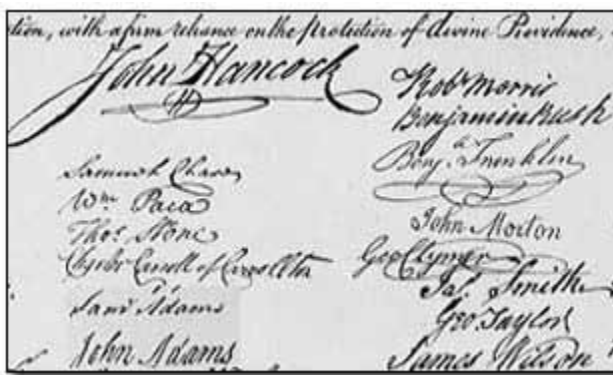 tion, with a firm reliance on the protection of divine Providence,
John Hancock
Samuel Chase
Wm Paca
Thos Stone
Charles Carroll of Carrollton
Saml Adams
John Adams
Robt Morris
Benjamin Rush
Benja Franklin
John Morton
Geo Clymer
Jas Smith
Geo Taylor
James Wilson